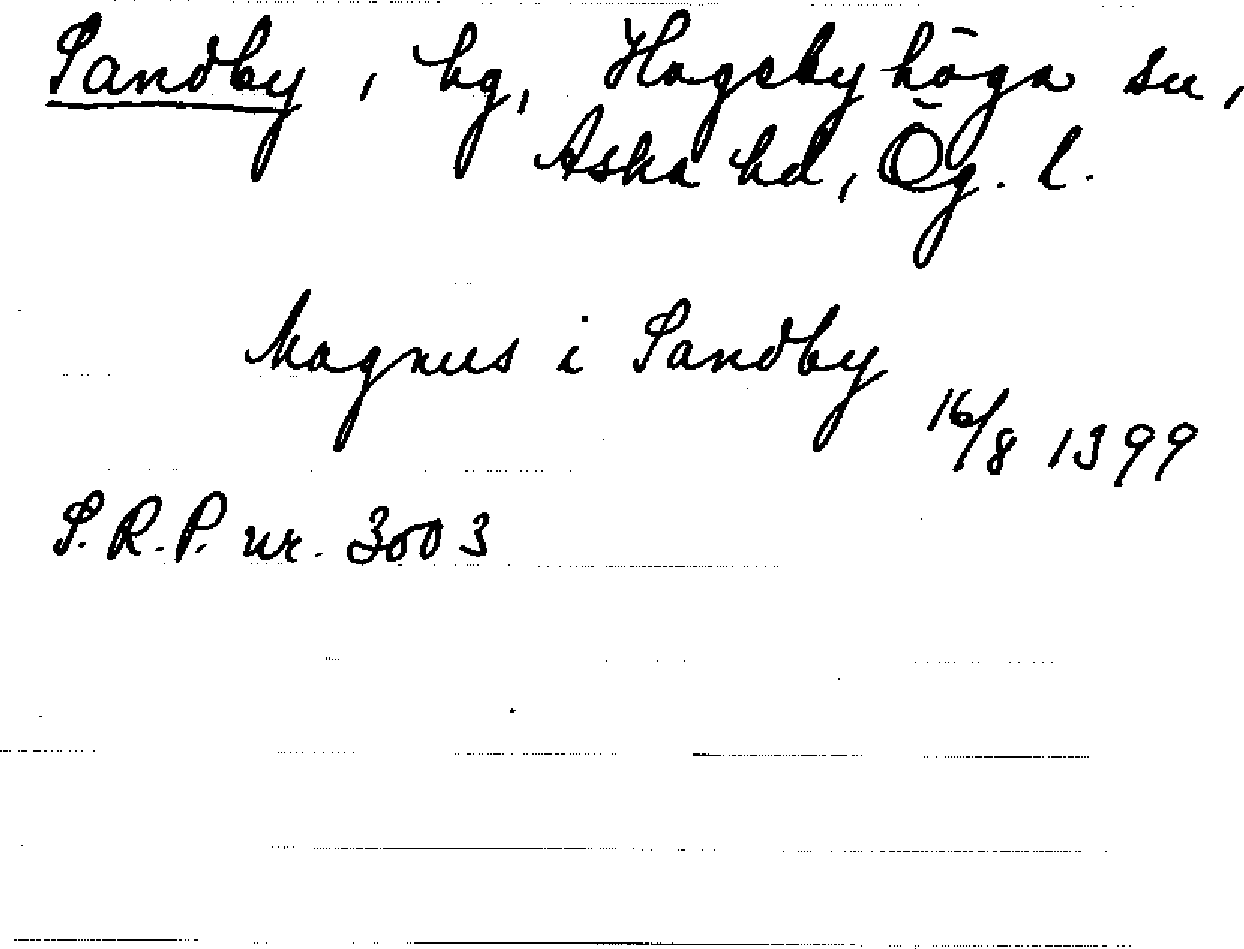 Sandby, hg, Hagebyhöga sn,
Aska hd, Ög. l.
Magnus i Sandby
16/8 1399
S.R.P. nr. 3003